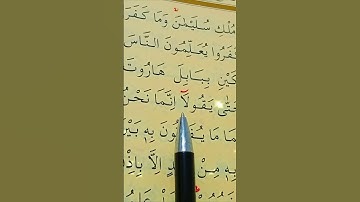 مُلْكِ سُلَيْمٰنَ وَمَا كَفَرَ
كَفَرُوا يُعَلِّمُونَ النَّاسَ
كَيْنِ بِبَابِلَ هَارُوتَ
حَتّٰى يَقُولَٓا اِنَّمَا نَحْنُ
مَا يُفَرِّقُونَ بِهٖ بَيْنَ
بِهٖ مِنْ اَحَدٍ اِلَّا بِاِذْ